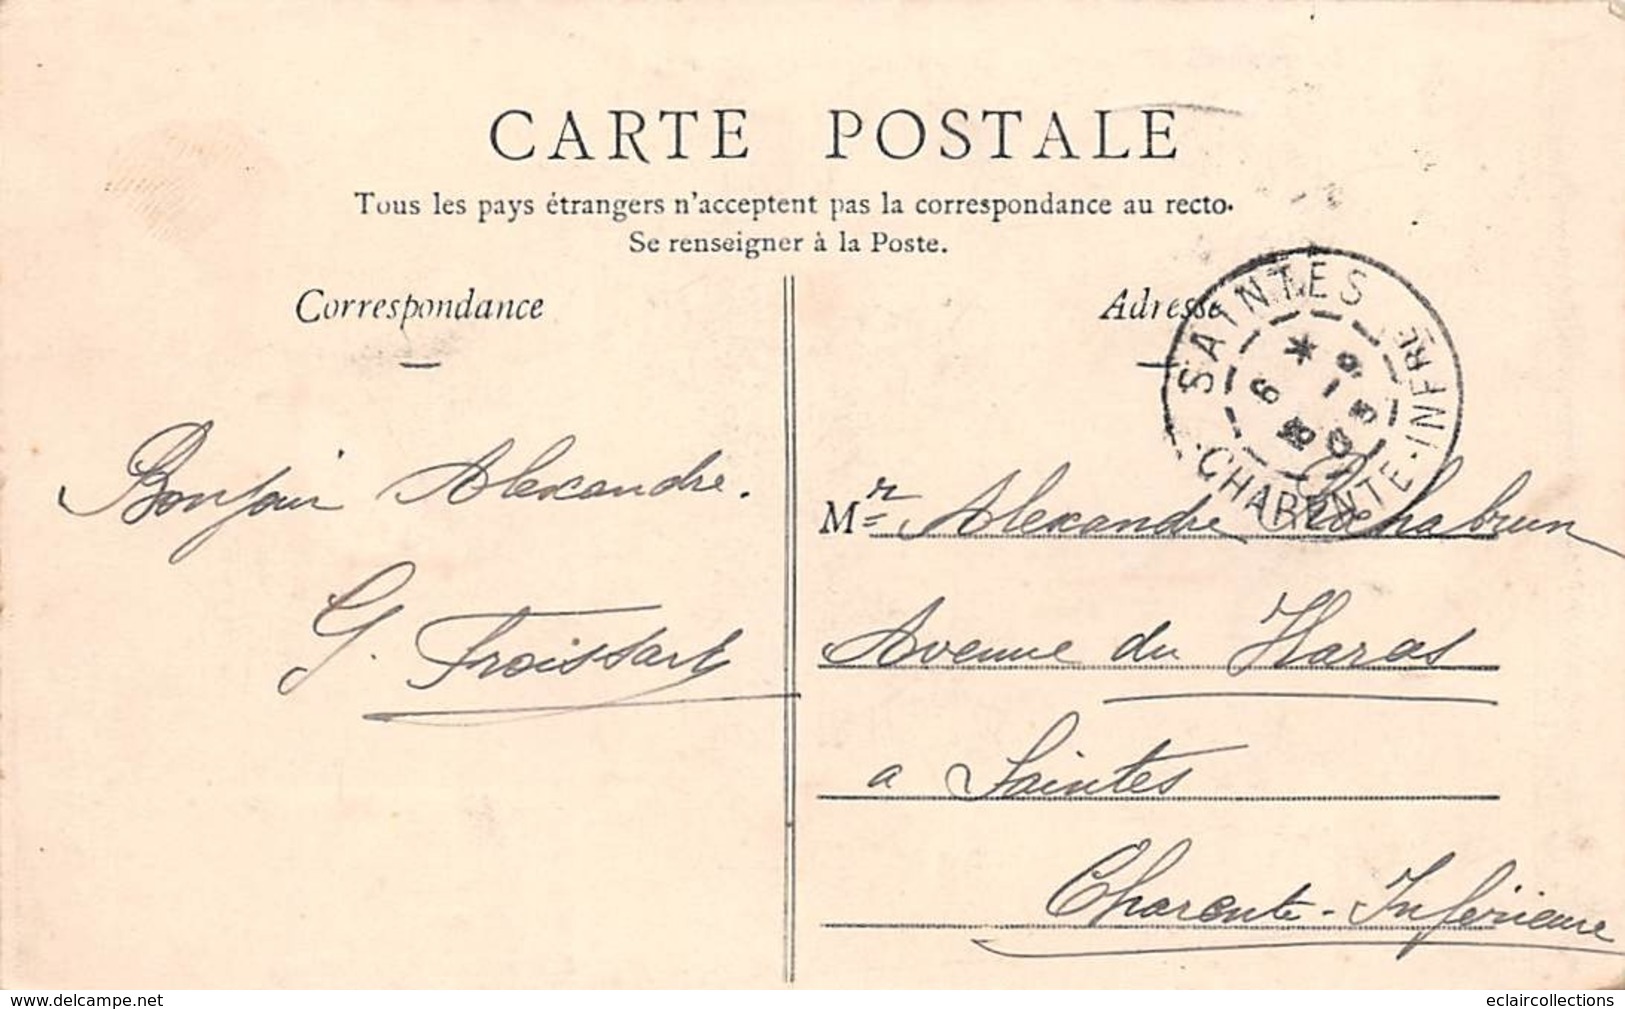 CARTE POSTALE
Tous les pays étrangers n'acceptent pas la correspondance au recto.
Se renseigner à la Poste.
Correspondance
Adresse
SAINTES
CHARENTE-INFRE
Bonjour Alexandre.
G. Froissart
Mr Alexandre Rochabrun
Avenue du Haras
a Saintes
Charente-Inférieure
www.delcampe.net
eclaircollections